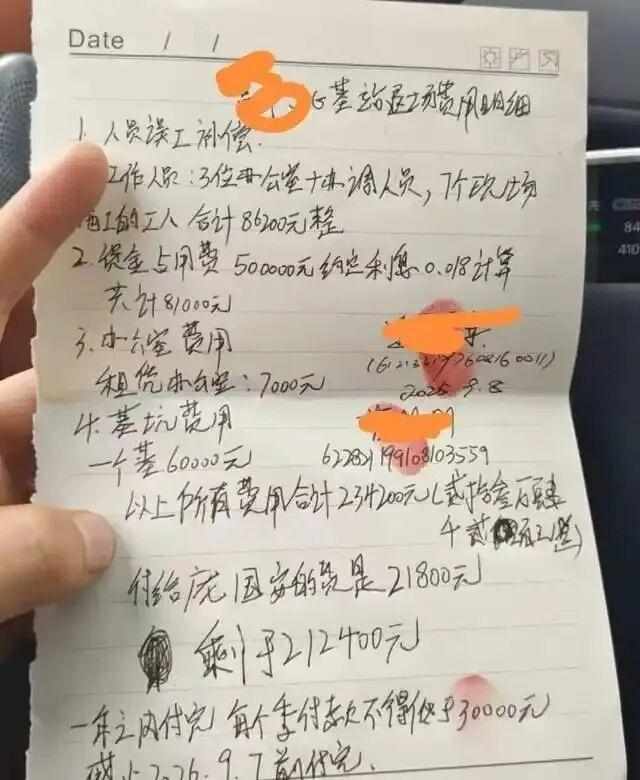 Date / /
G基站退场费用明细
1. 人员误工补偿.
工作人员:3位办公室+协调人员,7个现场
施工的工人 合计86200元整
2. 资金占用费 500000元约定利息0.018计算
共计81000元
3. 办公室费用
租凭办公室:7000元
2025.9.8
4. 基坑费用
一个基60000元
以上所有费用合计234200元(贰拾叁万肆
付给庞国安的费是21800元
剩于212400元
一年之内付完 每个季付款不得低于30000元
截止2026.9.7前付完.
84
410